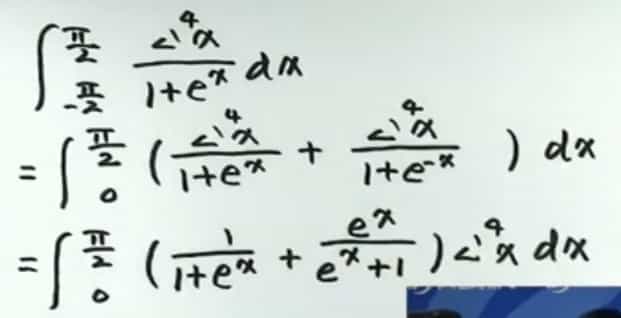 ∫_{-π/2}^{π/2} \frac{sin^4 x}{1+e^x} dx
= ∫_0^{π/2} ( \frac{sin^4 x}{1+e^x} + \frac{sin^4 x}{1+e^{-x}} ) dx
= ∫_0^{π/2} ( \frac{1}{1+e^x} + \frac{e^x}{e^x+1} ) sin^4 x dx